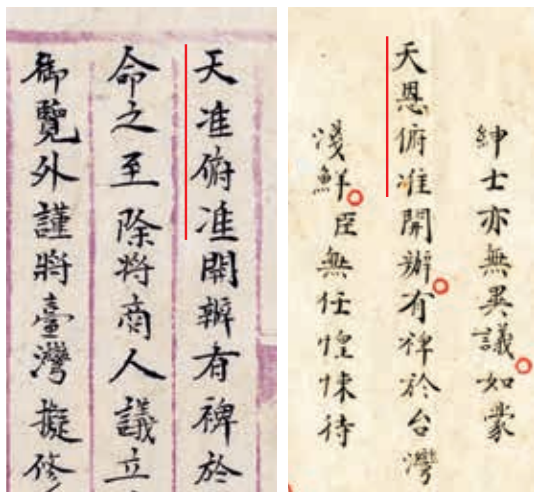 天准俯准開辦有裨於
命之至除將商人議立
御覽外謹將臺灣擬修
紳士亦無異議如蒙
天恩俯准開辦有裨於台灣
淺鮮臣無任惶悚待